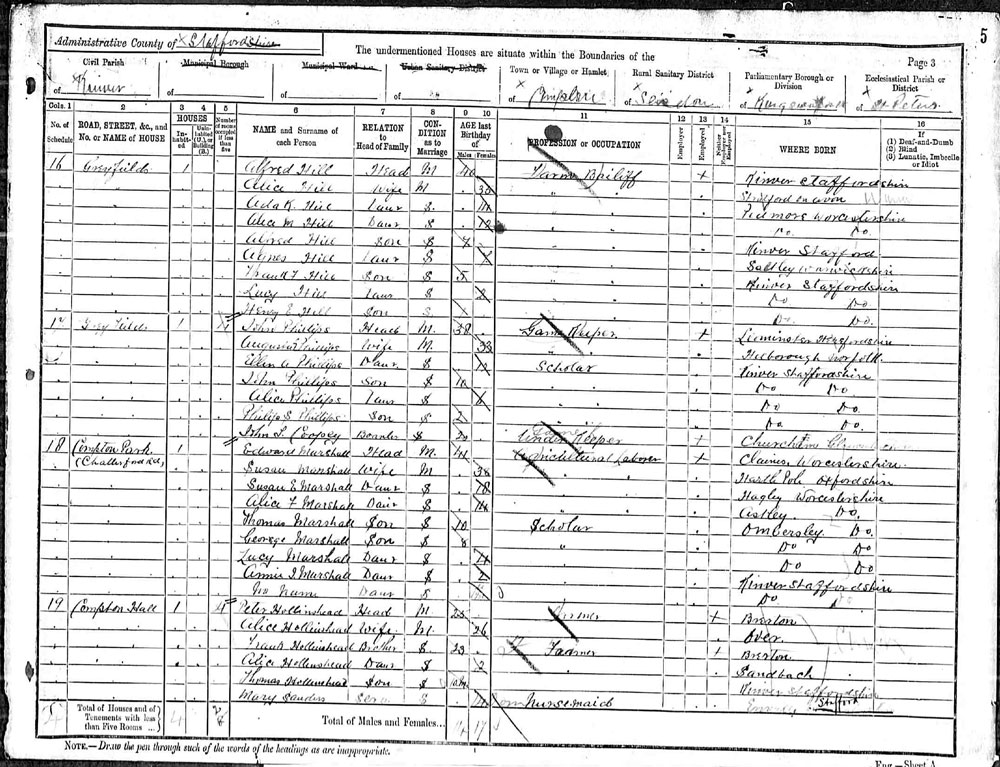 5
Administrative County of Staffordshire
The undermentioned Houses are situate within the Boundaries of the
Page 3
Civil Parish of Kinver
Municipal Borough of
Municipal Ward of
Urban Sanitary District of
Town or Village or Hamlet of
Rural Sanitary District of Seisdon
Parliamentary Borough or Division of
Ecclesiastical Parish or District of St Peters
Cols. 1 2 3 4 5 6 7 8 9 10 11 12 13 14 15 16
No. of Schedule ROAD, STREET, &c., and No. or NAME of HOUSE HOUSES Inhabited Uninhabited (U.), or Building (B.) Number of rooms occupied if less than five NAME and Surname of each Person RELATION to Head of Family CONDITION as to Marriage AGE last Birthday of Males Females PROFESSION or OCCUPATION Employer Employed Neither Employer nor Employed WHERE BORN If (1) Deaf-and-Dumb (2) Blind (3) Lunatic, Imbecile or Idiot
16 Greyfields 1 Alfred Hill Head M 40 Farm Bailiff + Kinver Staffordshire
Alice Hill Wife M 30 Stratford on Avon
Ada K. Hill Daur S Worcestershire
Alice M Hill Daur S 12 Do. Do.
Alfred Hill Son S 7 Kinver Stafford
Agnes Hill Daur S Saltley Warwickshire
Frank F Hill Son S 5 Kinver Staffordshire
Lucy Hill Daur S Do Do
Henry E Hill Son S Do. Do
17 Grey Fields 1 John Phillips Head M. 38 Game Keeper + Leominster
Phillips Wife M. 33 Norfolk
Ellen A Phillips Daur S 12 Scholar Kinver Staffordshire
John Phillips Son S 10 Do Do
Alice Phillips Daur S 6 Do Do.
Philip S Phillips Son S 2 Do. Do
John L Boarder S 20 Under Keeper +
18 Compton Park 1 Edward Marshall Head M 41 Agricultural Laborer + Claines, Worcestershire
Susan Marshall Wife M 38 Oxfordshire
Susan E Marshall Daur S 18 Hagley Worcestershire
Alice F Marshall Daur S 14 Astley Do.
Thomas Marshall Son S 10 Scholar Ombersley Do.
George Marshall Son S 8 Do Do
Lucy Marshall Daur S 4 Do Do
Annie J Marshall Daur S 2 Kinver Staffordshire
No Name Daur S Do
19 Compton Hall 1 Peter Hollinshead Head M. 25 Farmer + Brereton
Alice Hollinshead Wife M. 26 Over
Frank Hollinshead Brother S 23 Farmer + Brereton
Alice Hollinshead Daur S 2 Sandbach
Thomas Hollinshead Son S Kinver Staffordshire
Mary Sanders S Nursemaid
4 Total of Houses and of Tenements with less than Five Rooms ... 4 Total of Males and Females... 14 17
NOTE.—Draw the pen through such of the words of the headings as are inappropriate.
Eng.—Sheet A.